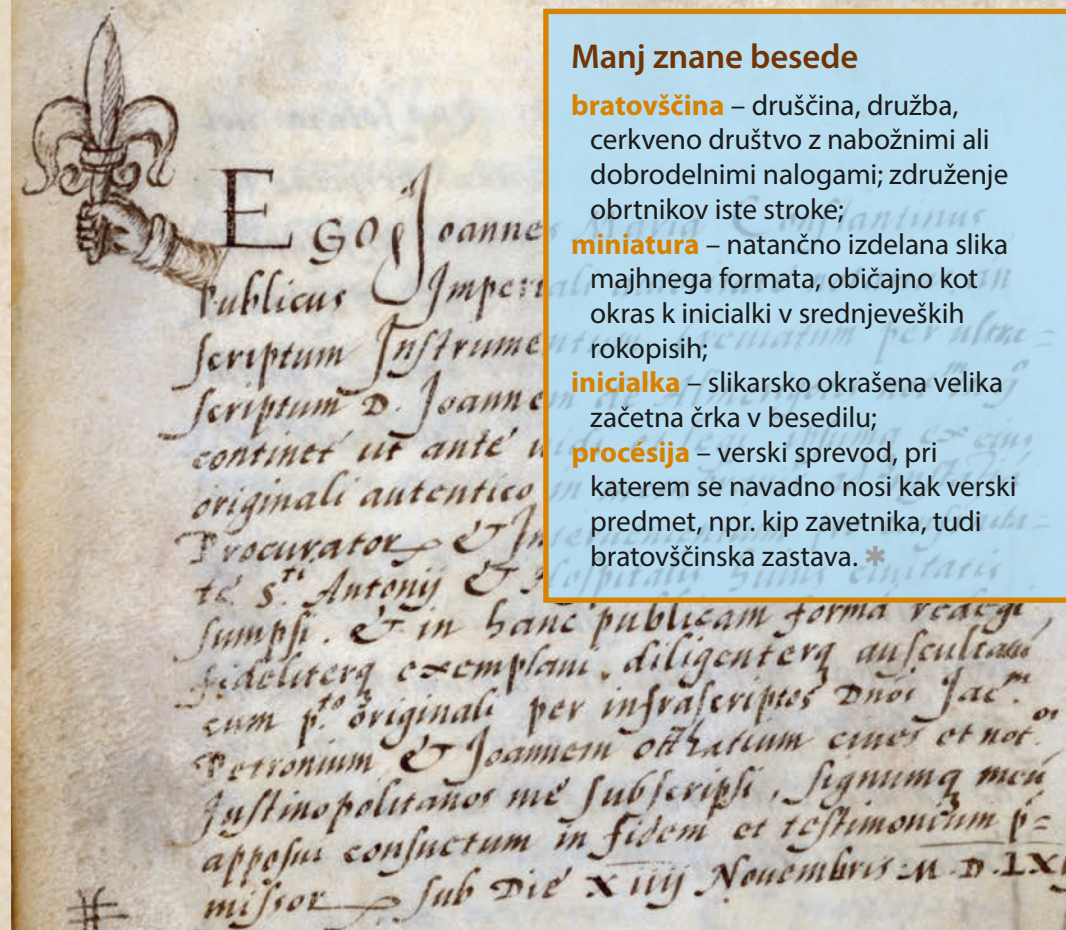 Manj znane besede
bratovščina – druščina, družba,
cerkveno društvo z nabožnimi ali
dobrodelnimi nalogami; združenje
obrtnikov iste stroke;
miniatura – natančno izdelana slika
majhnega formata, običajno kot
okras k inicialki v srednjeveških
rokopisih;
inicialka – slikarsko okrašena velika
začetna črka v besedilu;
procésija – verski sprevod, pri
katerem se navadno nosi kak verski
predmet, npr. kip zavetnika, tudi
bratovščinska zastava. ✱
Ego Joannes Maria Constantinus
Publicus Imperiali
scriptum Instrumentum per ultra=
scriptum D. Joannem
continet ut ante
originali autentico in
Procurator &
te S.ti Antonij & Hospitalis huius ciuitatis
sumpsi. & in hanc publicam formã redegi,
fideliterq exemplaui, diligenterq auscultaui
cum p.to originali per infrascriptos Dnos Jac.m
Petronium & Joannem ciues et not.os
Justinopolitanos me subscripsi, signumq meũ
apposui consuetum in fidem et testimonium p=
missor sub Die X iiij Nouembris M.D.LX